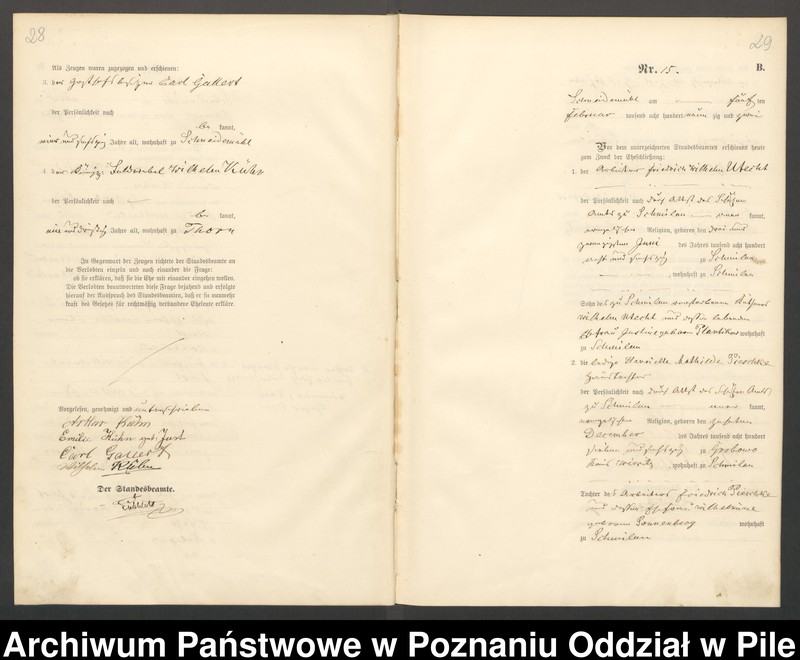 28
Als Zeugen waren zugezogen und erschienen:
3. der Gasthofsbesitzer Carl Gallert
der Persönlichkeit nach
be kannt,
Jahre alt, wohnhaft zu Schneidemühl
4. der Feldwebel Wilhelm Kühn
der Persönlichkeit nach
be kannt,
Jahre alt, wohnhaft zu Thorn
In Gegenwart der Zeugen richtete der Standesbeamte an
die Verlobten einzeln und nach einander die Frage:
ob sie erklären, daß sie die Ehe mit einander eingehen wollen.
Die Verlobten beantworteten diese Frage bejahend und erfolgte
hierauf der Ausspruch des Standesbeamten, daß er sie nunmehr
kraft des Gesetzes für rechtmäßig verbundene Eheleute erkläre.
Vorgelesen, genehmigt und unterschrieben
Arthur Kühn
Emilie Kühn geb. Just
Carl Gallert
Wilhelm Kühn
Der Standesbeamte.
29
Nr. 15. B.
Schneidemühl am fünf ten
Februar tausend acht hundert neun zig und zwei
Vor dem unterzeichneten Standesbeamten erschienen heute
zum Zweck der Eheschließung:
1. der Arbeiter Friedrich Wilhelm Utecht
der Persönlichkeit nach durch Attest des Schulzen
Amts zu Schmilau aner kannt,
evangelischer Religion, geboren den drei und
zwanzigsten Juni des Jahres tausend acht hundert
acht und sechszig zu Schmilau
, wohnhaft zu Schmilau
Sohn des zu Schmilau verstorbenen
Wilhelm Utecht und dessen lebenden
Ehefrau Justine geboren wohnhaft
zu Schmilau
2. die ledige Henriette Mathilde Pieschke
Haustochter
der Persönlichkeit nach durch Attest des Schulzen Amts
zu Schmilau aner kannt,
evangelischer Religion, geboren den
December des Jahres tausend acht hundert
sieben und sechszig zu Grabowo
Kreis Wirsitz, wohnhaft zu Schmilau
Tochter des Arbeiters Friedrich Pieschke
und dessen Ehefrau Wilhelmine
geboren Sonnenberg wohnhaft
zu Schmilau
Archiwum Państwowe w Poznaniu Oddział w Pile